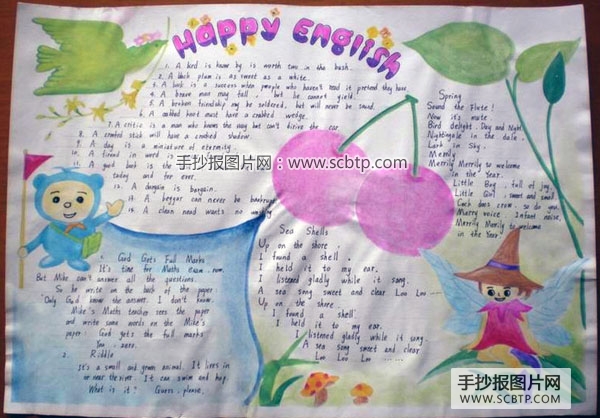 Happy English
1. A bird in hand by is worth two in the bush.
2. A black plum is as sweet as a white.
3. A book is a success when people who haven't read it pretend they have
4. A brave man may fall, but he cannot yield.
5. A broken friendship may be soldered, but will never be sound.
6. A cobbed knot must have a crabbed wedge.
7. A critic is a man who knows the way but can't drive the car
8. A crooked stick will have a crooked shadow.
9. A day is a miniature of eternity.
10. A friend in word i
11. A good but is the
today and for ever.
12. A danger is bargain.
13. A beggar can never be bankrupt
14. A clean need wants no washing
手抄报图片网:www.scbtp.com
Spring
Sound the Flute!
Now it's mute
Bird delight, Day and Night
Nightingale in the dale.
Lark in Sky.
Merrily
Merrily Merrily to welcome
in the Year!
Little Boy, full of joy,
Little Girl, sweet and small.
Cock does crow, so do you,
Merry voice, Infant noise,
Merrily Merrily to welcome
in the Year!
1. God Gets Full Marks
It's time for Maths exam.
But Mike can't answer all the questions.
So he write on the back of the paper
"Only God know the answer. I don't know."
Mike's Maths teacher sees the paper
and write some words on the Mike's
paper: God gets the full marks
You: zero.
2. Riddle
It's a small and green animal. It lives in
or near the river. It can swim and hop.
What is it? Guess, please.
Sea Shells
Up on the shore,
I found a shell,
I held it to my ear.
I listened gladly while it sang.
A sea song sweet and clear Loo Loo
Up on the shore.
I found a shell
I held it to my ear.
I listened gladly while it sang.
A sea song sweet and clear.
Loo Loo Loo ......
手抄报图片网
WWW.SCBTP.COM